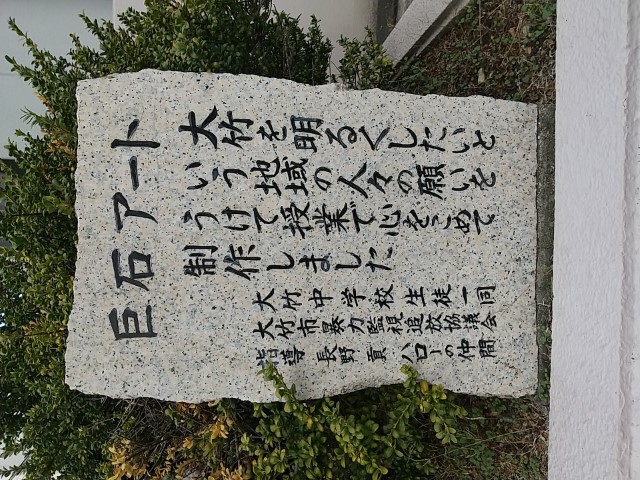 巨石アート
大竹を明るくしたいと
いう地域の人々の願いを
うけて授業で心をこめて
制作しました
大竹中学校生徒一同
大竹市暴力監視追放協議会
指導 長野 貢 ハローの仲間